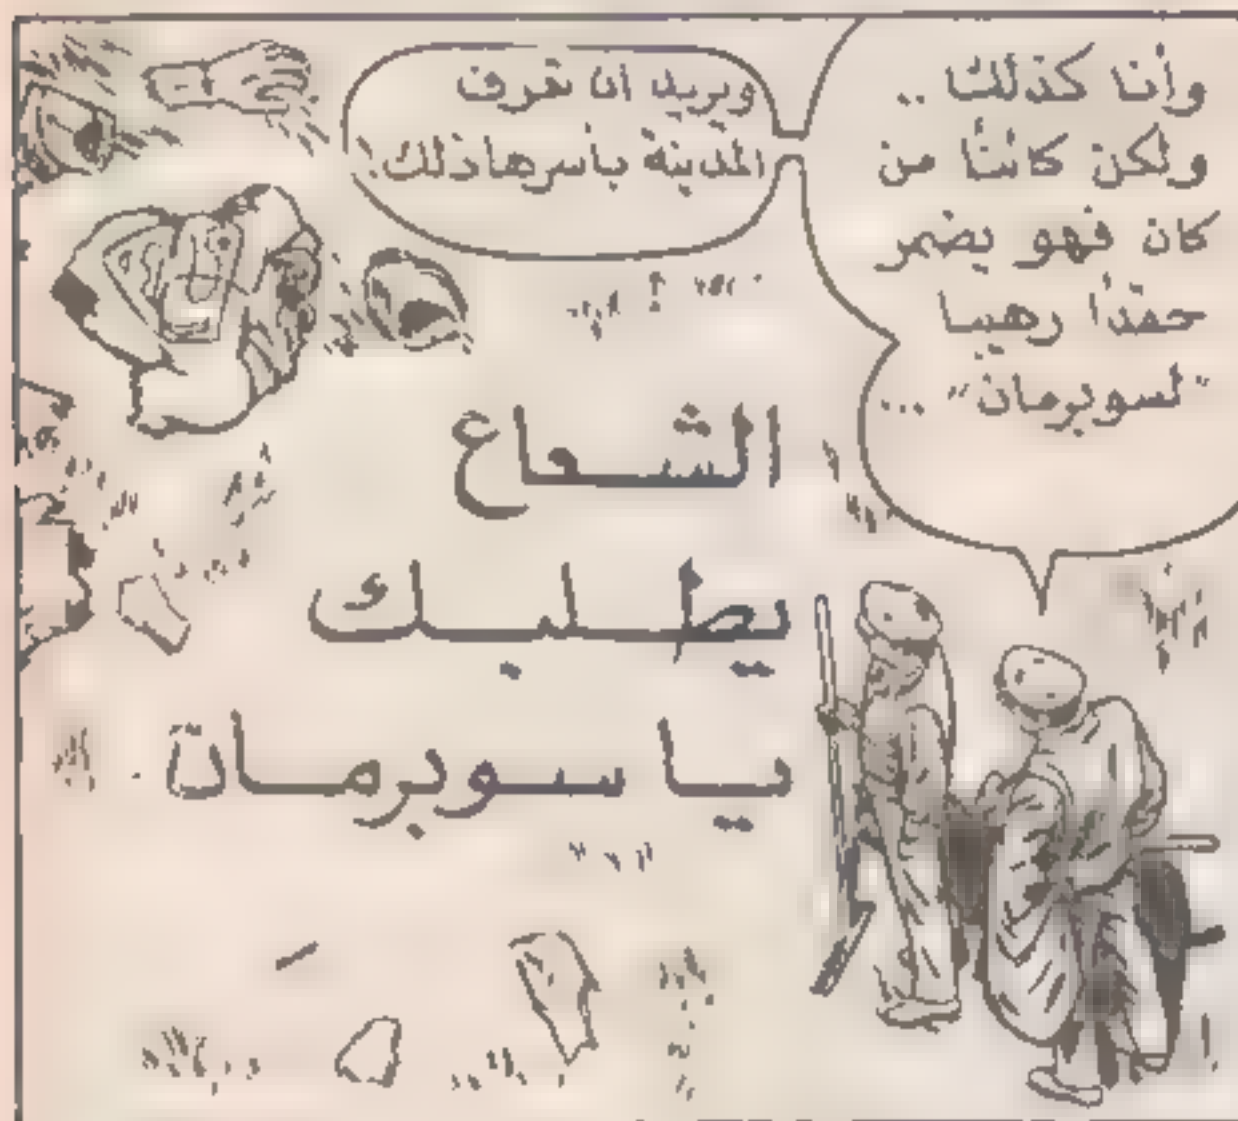 وأنا كذلك ..
ولكن كائناً من
كان فهو يضمر
حقداً رهيبا
"لسوبرمان" ...
ويريد ان تعرف
المدينة بأسرها ذلك!
الشعاع
يطلبك
يا سوبرمان